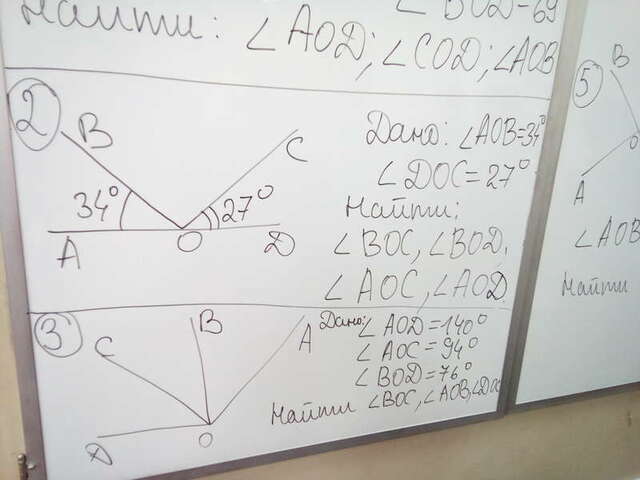 Найти:
∠BOD=69
∠AOD; ∠COD; ∠AOB
2
B
C
34°
27°
A
O
D
Дано: ∠AOB=34°
∠DOC=27°
Найти:
∠BOC, ∠BOD,
∠AOC, ∠AOD
3
C
B
A
D
O
Дано: ∠AOD=140°
∠AOC=94°
∠BOD=76°
Найти ∠BOC, ∠AOB, ∠DOC
5
B
O
A
∠AOB
Найти